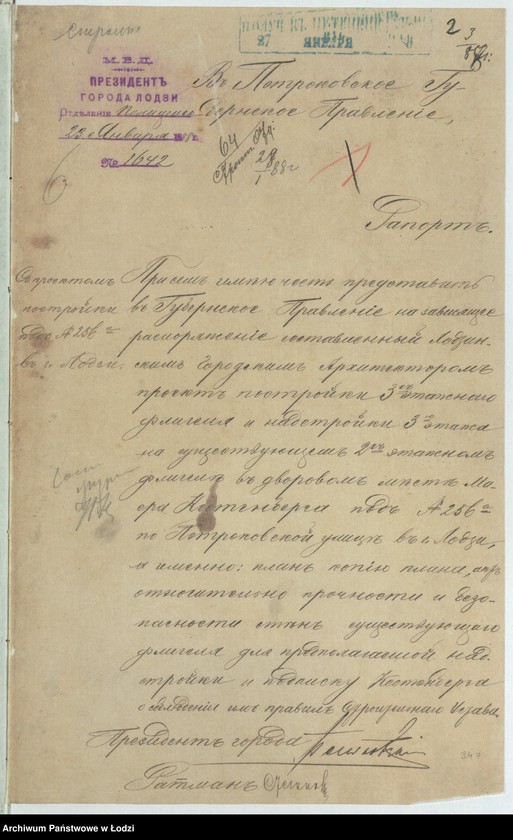 ПОЛУЧ. ВЪ ПЕТРОК. ГУБЕРН.
27 ЯНВАРЯ
2
3
М. В. Д.
ПРЕЗИДЕНТЪ
ГОРОДА ЛОДЗИ
Отдѣленіе Полицейское
23 Января 188
№ 1642
Въ Петроковское Гу-
бернское Правленіе,
64
28/1 88 г
Рапортъ.
Съ проэктомъ
постройки
подъ № 256 а
въ г. Лодзи.
При семъ имѣю честь представить
въ Губернское Правленіе на зависящее
распоряженіе составленный Лодзин-
скимъ Городскимъ Архитекторомъ
проектъ постройки 3хъ этажнаго
флигеля и надстройки 3го этажа
на существующемъ 2хъ этажномъ
флигелѣ въ дворовомъ мѣстѣ Ма-
ера Костенберга подъ № 256 а
по Петроковской улицѣ въ г. Лодзи,
а именно: планъ копію плана, актъ
относительно прочности и безо-
пасности стѣнъ существующаго
флигеля для предполагаемой над-
стройки и подписку Костенберга
о соблюденіи имъ правилъ Строительнаго Устава.
Президентъ города
Ратманъ
347
Archiwum Państwowe w Łodzi